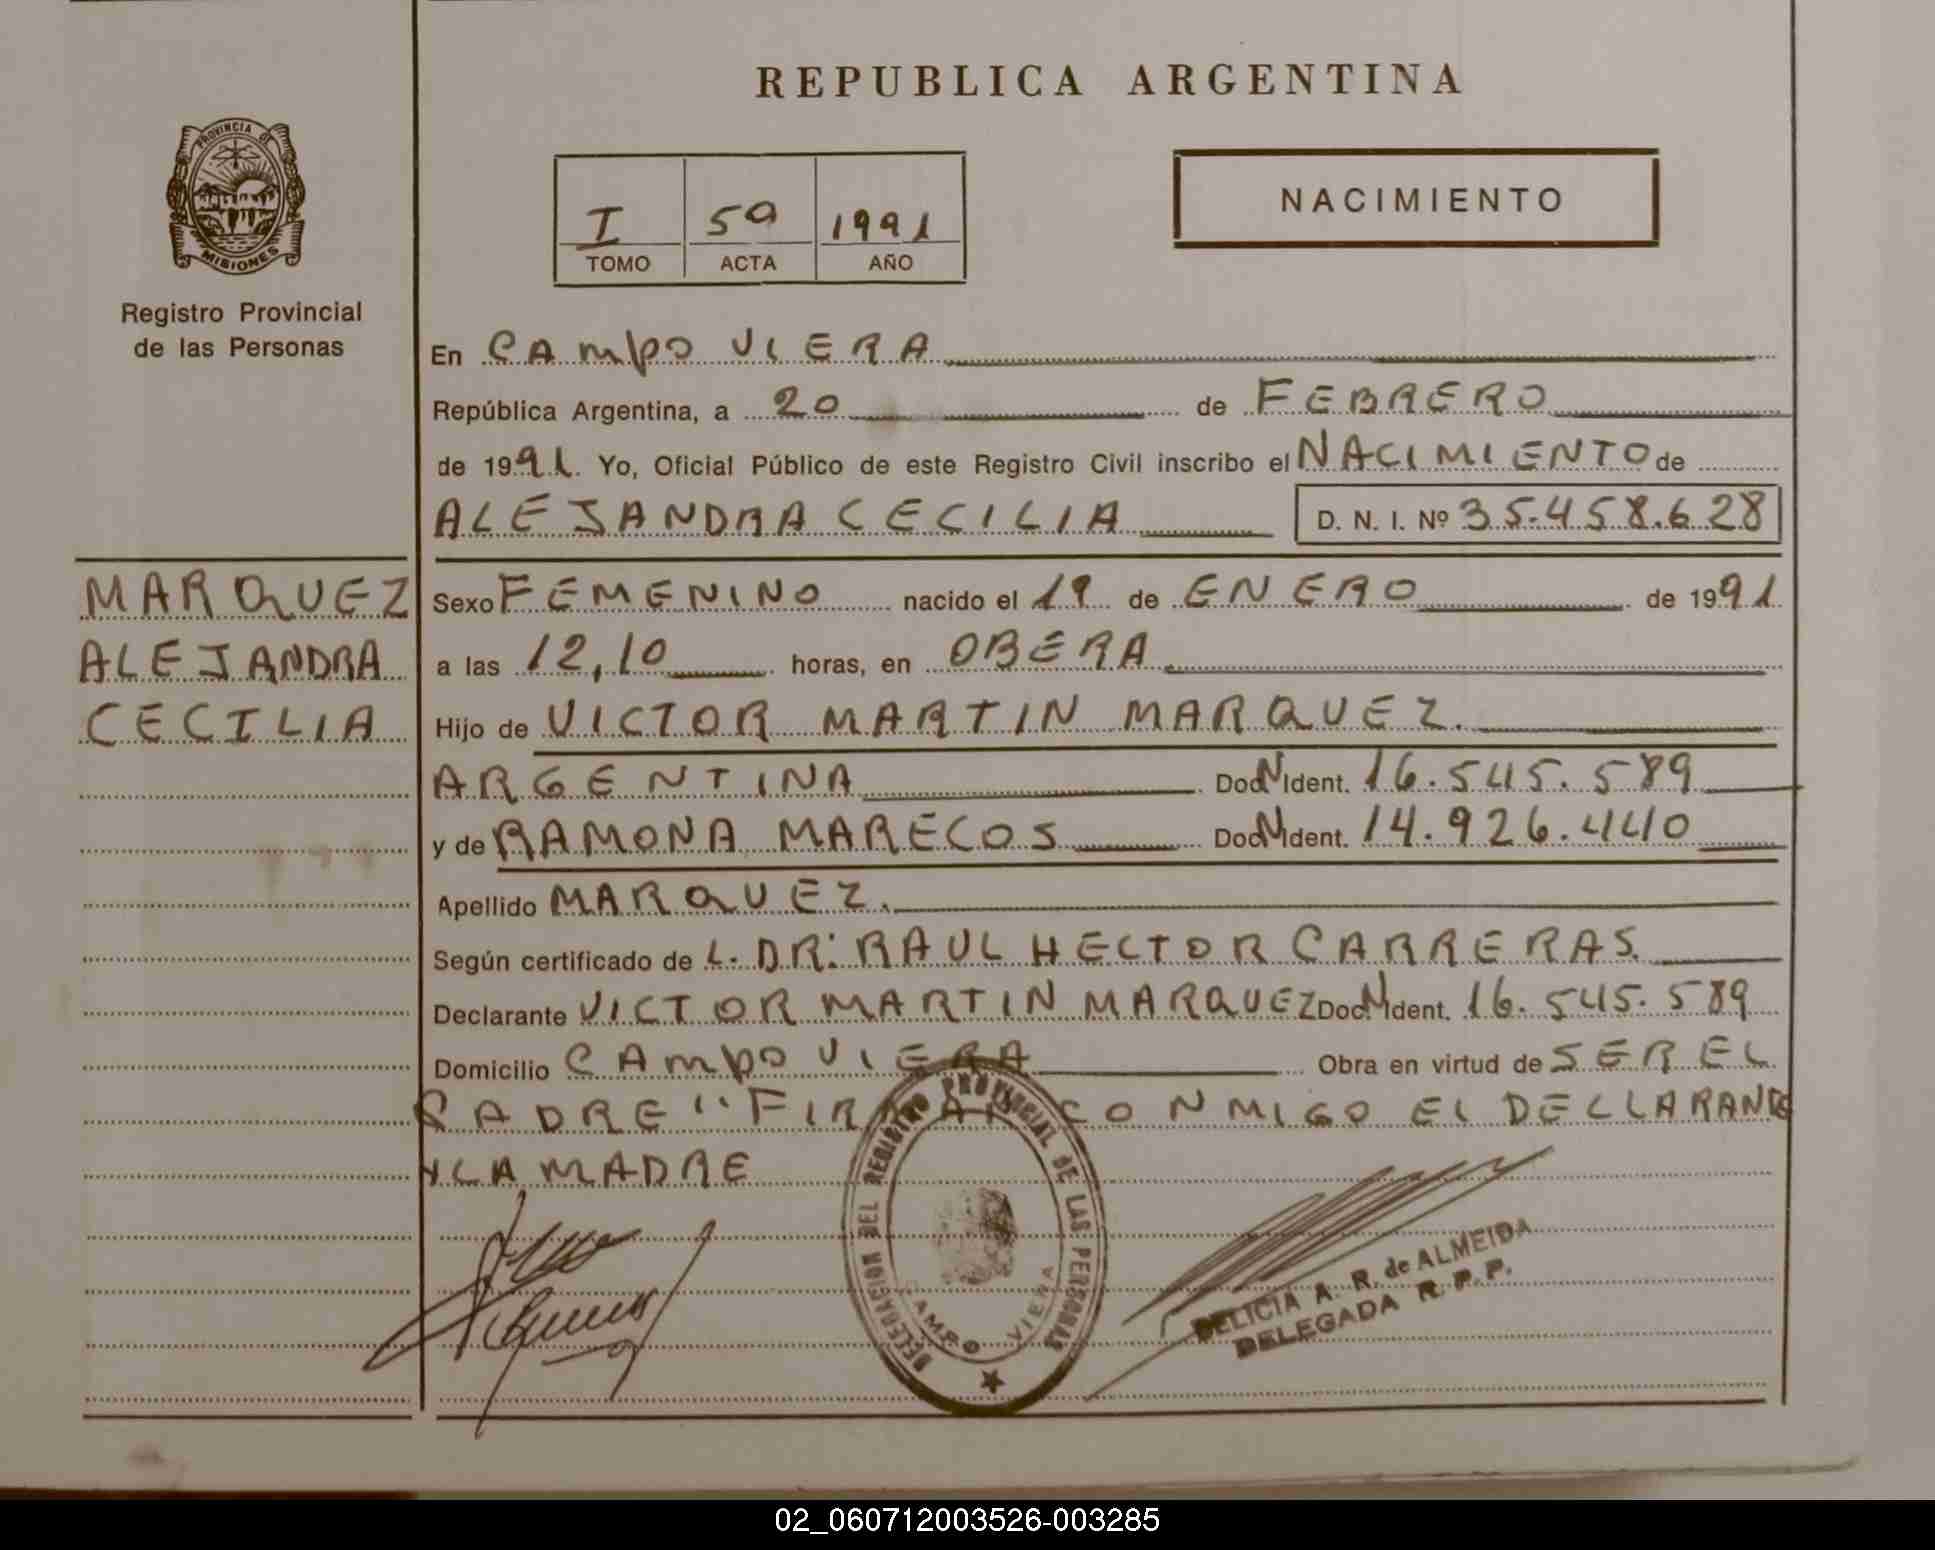 REPUBLICA ARGENTINA
PROVINCIA DE
MISIONES
Registro Provincial
de las Personas
NACIMIENTO
I 59 1991
TOMO ACTA AÑO
En CAMPO VIERA
República Argentina, a 20 de FEBRERO
de 1991. Yo, Oficial Público de este Registro Civil inscribo el NACIMIENTO de
ALEJANDRA CECILIA D. N. I. Nº 35.458.628
MARQUEZ
ALEJANDRA
CECILIA
Sexo FEMENINO nacido el 19 de ENERO de 1991
a las 12,10 horas, en OBERA
Hijo de VICTOR MARTIN MARQUEZ.
ARGENTINA Doc N Ident. 16.545.589
y de RAMONA MARECOS Doc N Ident. 14.926.440
Apellido MARQUEZ.
Según certificado de L. DR: RAUL HECTOR CARRERAS.
Declarante VICTOR MARTIN MARQUEZ Doc N Ident. 16.545.589
Domicilio CAMPO VIERA Obra en virtud de SER EL
PADRE " FIRMAN CONMIGO EL DECLLARANTE
Y LA MADRE
DELEGACION DEL REGISTRO PROVINCIAL DE LAS PERSONAS
CAMPO VIERA
DELICIA A. R. de ALMEIDA
DELEGADA R. P. P.
02_060712003526-003285